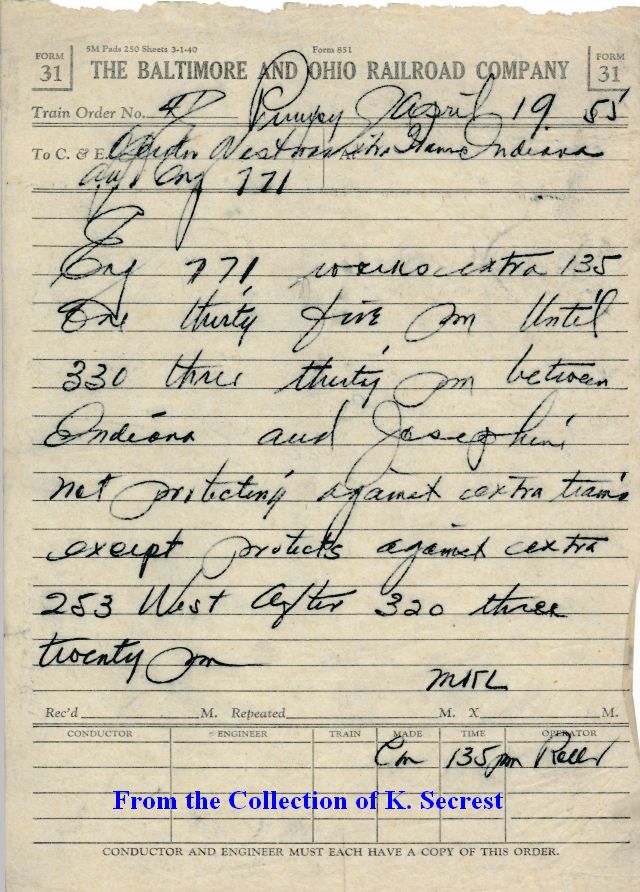 5M Pads 250 Sheets 3-1-40 Form 851
FORM 31 THE BALTIMORE AND OHIO RAILROAD COMPANY FORM 31
Train Order No. 47 April 19 55
To C. & E. Westward Extra Indiana
Eng 771
Eng 771 works extra 135
One thirty five pm Until
330 three thirty pm between
Indiana and Josephine
not protecting against extra trains
except protects against extra
253 West After 320 three
twenty pm
MKL
Rec'd M. Repeated M. X M.
CONDUCTOR ENGINEER TRAIN MADE TIME OPERATOR
Com 135pm
From the Collection of K. Secrest
CONDUCTOR AND ENGINEER MUST EACH HAVE A COPY OF THIS ORDER.